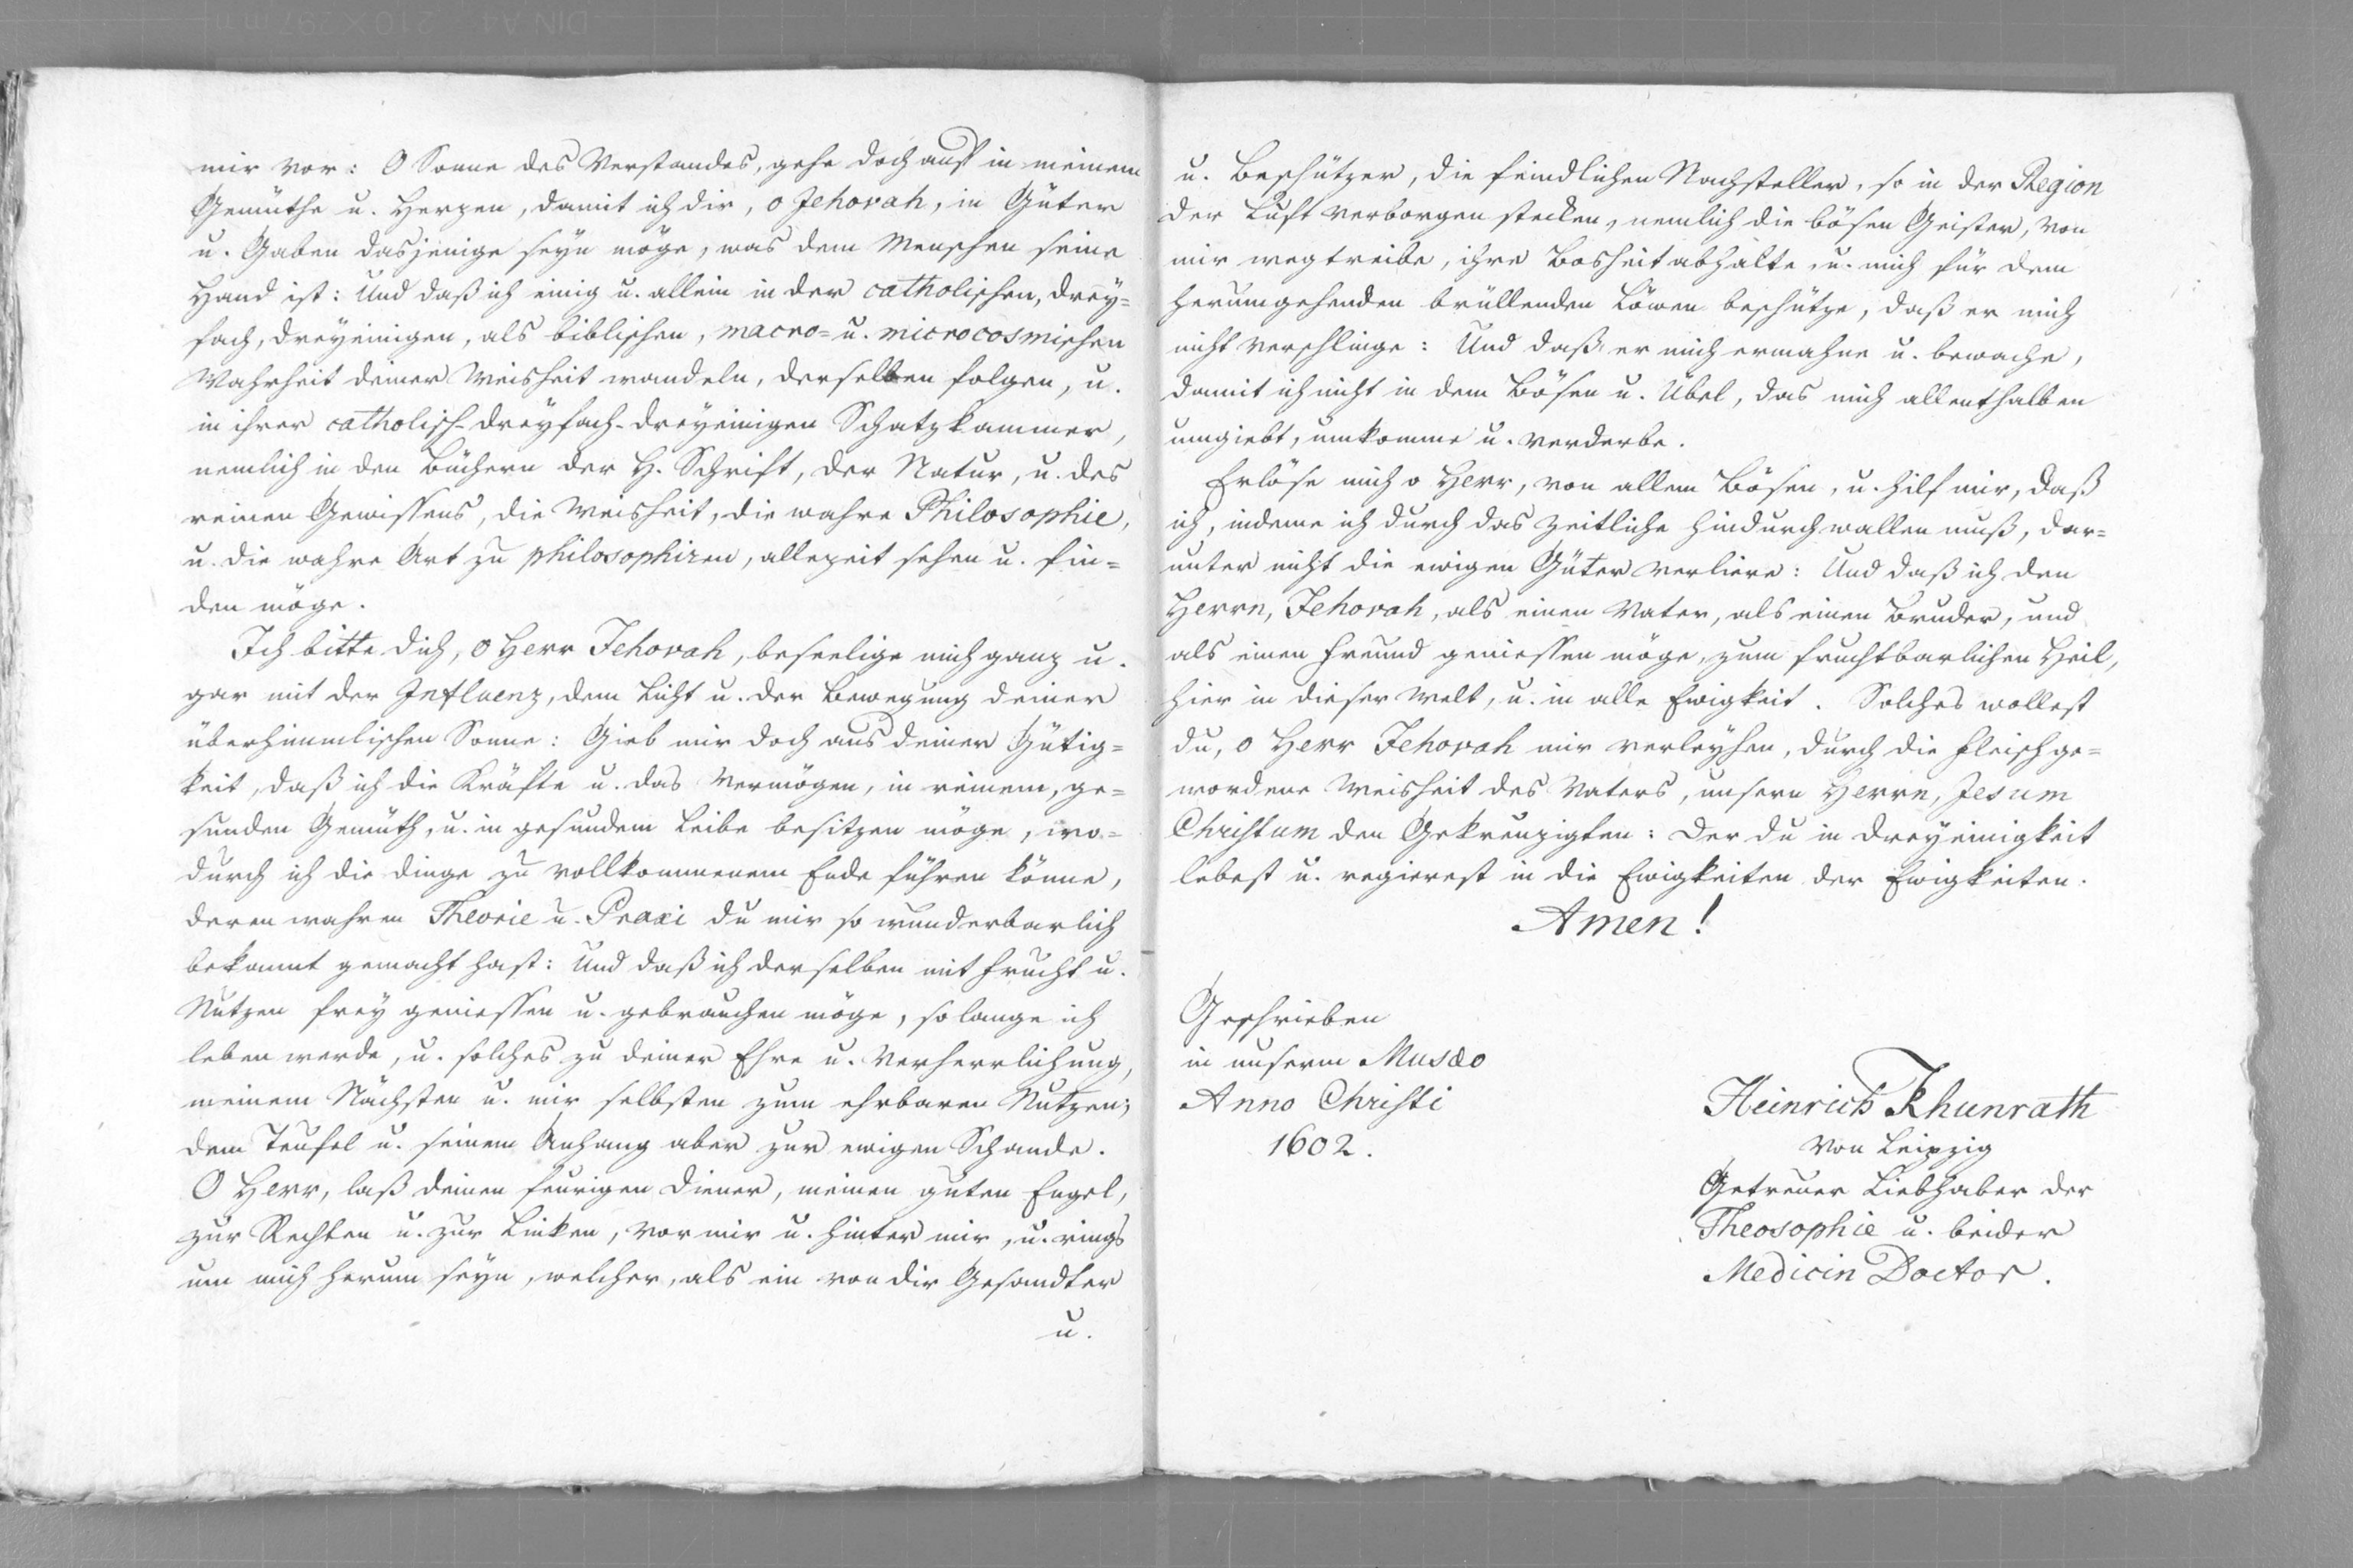 mir vor: O Sonne des Verstandes, gehe doch auf in meinem
Gemüthe u. Herzen, damit ich dir, o Jehovah, in Güter
u. Gaben dasjenige seyn möge, was dem Menschen seine
Hand ist: Und daß ich einig u. allein in der catholischen, drey=
fach, dreyeinigen, als biblischen, macro= u. microcosmischen
Wahrheit deiner Weisheit wandeln, derselben folgen, u.
in ihrer catholisch-dreyfach-dreyeinigen Schatzkammer,
nemlich in den Büchern der H. Schrift, der Natur, u. des
reinen Gewissens, die Weisheit, die wahre Philosophie,
u. die wahre Art zu philosophiren, allezeit sehen u. fin=
den möge.
Ich bitte dich, O Herr Jehovah, beseelige mich ganz u.
gar mit der Influenz, dem Licht u. der Bewegung deiner
überhimmlischen Sonne: Gieb mir doch aus deiner Gütig=
keit, daß ich die Kräfte u. das Vermögen, in reinem, ge=
sunden Gemüth, u. in gesundem Leibe besitzen möge, wo=
durch ich die dinge zu vollkommenem Ende führen könne,
deren wahren Theorie u. Praxi du mir so wunderbarlich
bekannt gemacht hast: Und daß ich derselben mit Frucht u.
Nutzen frey geniessen u. gebrauchen möge, so lange ich
leben werde, u. solches zu deiner Ehre u. Verherrlichung,
meinem Nächsten u. mir selbsten zum ehrbaren Nutzen;
dem Teufel u. seinem Anhang aber zur ewigen Schande.
O Herr, laß deinen feurigen Diener, meinen guten Engel,
zur Rechten u. zur Linken, vor mir u. hinter mir, u. rings
um mich herum seyn, welcher, als ein von dir Gesandter
u.
u. Beschützer, die feindlichen Nachsteller, so in der Region
der Luft verborgen stecken, nemlich die bösen Geister, von
mir wegtreibe, ihre Bosheit abhalte, u. mich für dem
herumgehenden brüllenden Löwen beschütze, daß er mich
nicht verschlinge: Und daß er mich ermahne u. bewache,
damit ich nicht in dem Bösen u. Übel, das mich allenthalben
umgiebt, umkomme u. verderbe.
Erlöse mich o Herr, von allem Bösen, u. hilf mir, daß
ich, indeme ich durch das zeitliche hindurch wallen muß, dar=
unter nicht die ewigen Güter verliere: Und daß ich den
Herrn, Jehovah, als einen Vater, als einen Bruder, und
als einen Freund geniessen möge, zum fruchtbarlichen Heil,
hier in dieser Welt, u. in alle Ewigkeit. Solches wollest
du, O Herr Jehovah mir verleyhen, durch die Fleisch ge=
wordene Weisheit des Vaters, unsern Herrn, Jesum
Christum den Gekreuzigten: Der du in Dreyeinigkeit
lebest u. regierest in die Ewigkeiten der Ewigkeiten.
Amen!
Geschrieben
in unserm Musæo
Anno Christi
1602.
Heinrich Khunrath
von Leipzig
Getreuer Liebhaber der
Theosophie u. beider
Medicin Doctor.